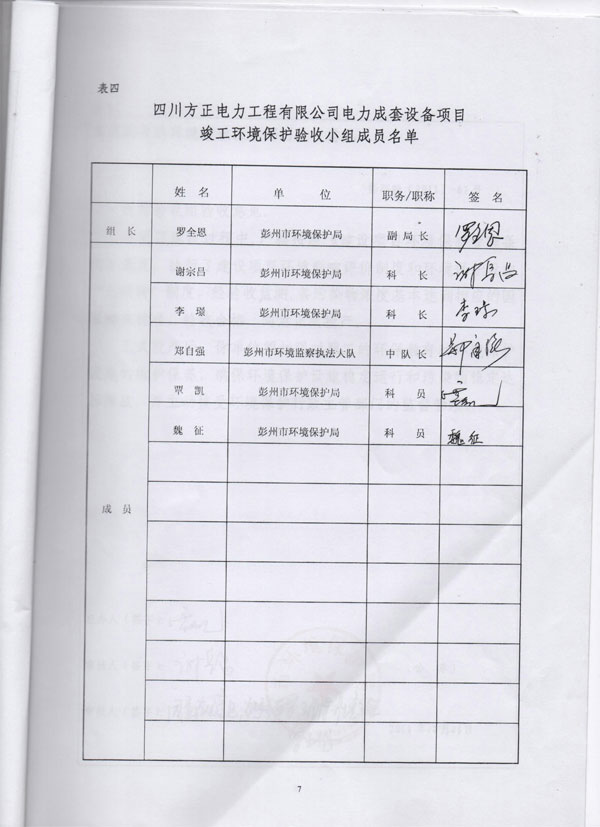 表四
四川方正电力工程有限公司电力成套设备项目
竣工环境保护验收小组成员名单
姓 名 单 位 职务/职称 签 名
组 长 罗全恩 彭州市环境保护局 副 局 长 罗全恩
谢宗昌 彭州市环境保护局 科 长 谢宗昌
李 璟 彭州市环境保护局 科 长 李璟
郑自强 彭州市环境监察执法大队 中 队 长 郑自强
覃 凯 彭州市环境保护局 科 员
魏 征 彭州市环境保护局 科 员 魏征
成 员
7